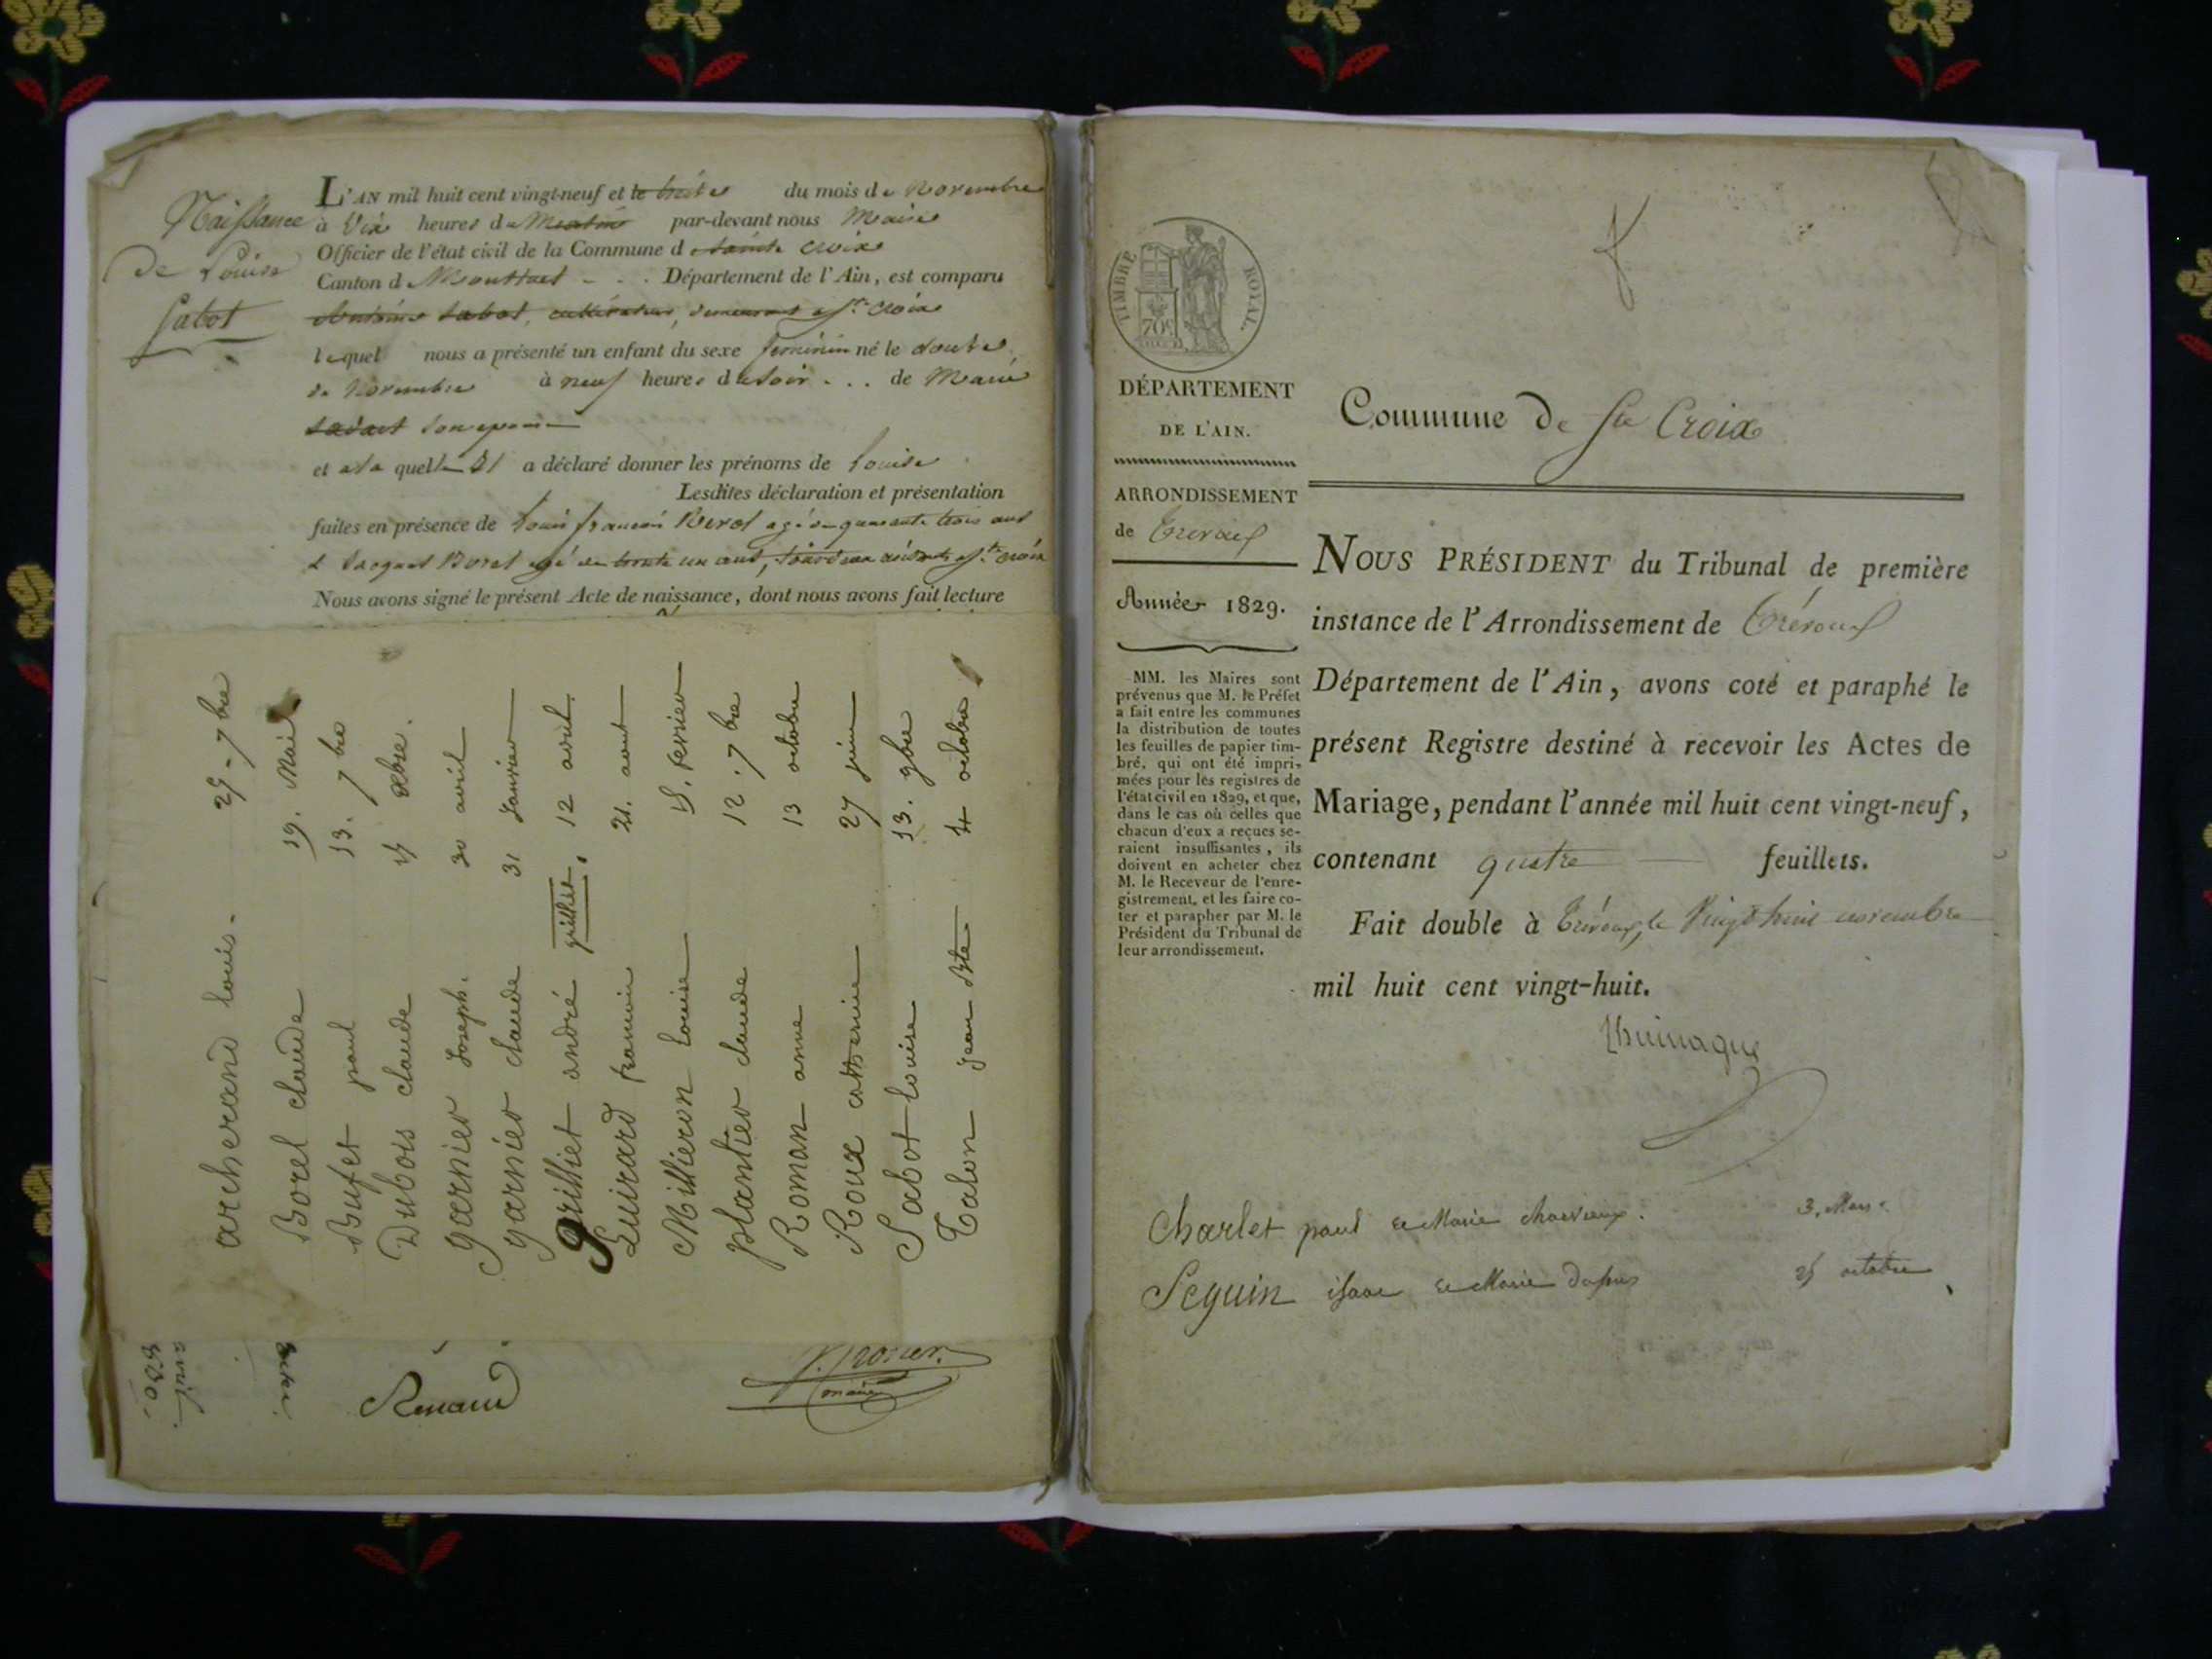 Naissance
de Louise
Sabot
L'AN mil huit cent vingt-neuf et le treize du mois de Novembre
à Dix heures du Matin par-devant nous Maire
Officier de l'état civil de la Commune d sainte croix
Canton d Montluel - . . Département de l'Ain, est comparu
Antoine Sabot, cultivateur, demeurant a Ste croix
lequel nous a présenté un enfant du sexe feminin né le douze
de Novembre à neuf heures du soir . . . de Marie
son epouse
et a la quelle il a déclaré donner les prénoms de Louise
Lesdites déclaration et présentation
faites en présence de Louis françois agé de quarante trois ans
& Jacques Borel agé de trente un ans, tous deux a Ste croix
Nous avons signé le présent Acte de naissance, dont nous avons fait lecture
archerand louis. 25 - 7bre
Borel claude 19. Mai
Bufet paul 13. 7bre
Dubois claude Xbre.
garnier Joseph. 30 avril
garnier claude 31 Janvier
grilliet andré grilliet. 12 avril
Luirard francois 21. aout
Millieron louise 15. fevrier
plantier claude 12. 7bre
Roman anne 13 octobre
Roux catherine 27 juin
Sabot louise 13. 9bre
Talon jean Bte 4 octobre
Renaud
maire
TIMBRE ROYAL.
70c
DÉPARTEMENT
DE L'AIN.
ARRONDISSEMENT
de Trevoux
Année 1829.
MM. les Maires sont
prévenus que M. le Préfet
a fait entre les communes
la distribution de toutes
les feuilles de papier tim-
bré, qui ont été impri-
mées pour les registres de
l'état civil en 1829, et que,
dans le cas où celles que
chacun d'eux a reçues se-
raient insuffisantes, ils
doivent en acheter chez
M. le Receveur de l'enre-
gistrement, et les faire co-
ter et parapher par M. le
Président du Tribunal de
leur arrondissement.
Commune de Ste Croix
NOUS PRÉSIDENT du Tribunal de première
instance de l'Arrondissement de Trévoux
Département de l'Ain, avons coté et paraphé le
présent Registre destiné à recevoir les Actes de
Mariage, pendant l'année mil huit cent vingt-neuf,
contenant quatre feuillets.
Fait double à Trévoux, le Vingt huit novembre
mil huit cent vingt-huit.
Charlet paul et Marie charvieux. 3. Mars.
Seguin isaac et Marie Dupuis 25 octobre